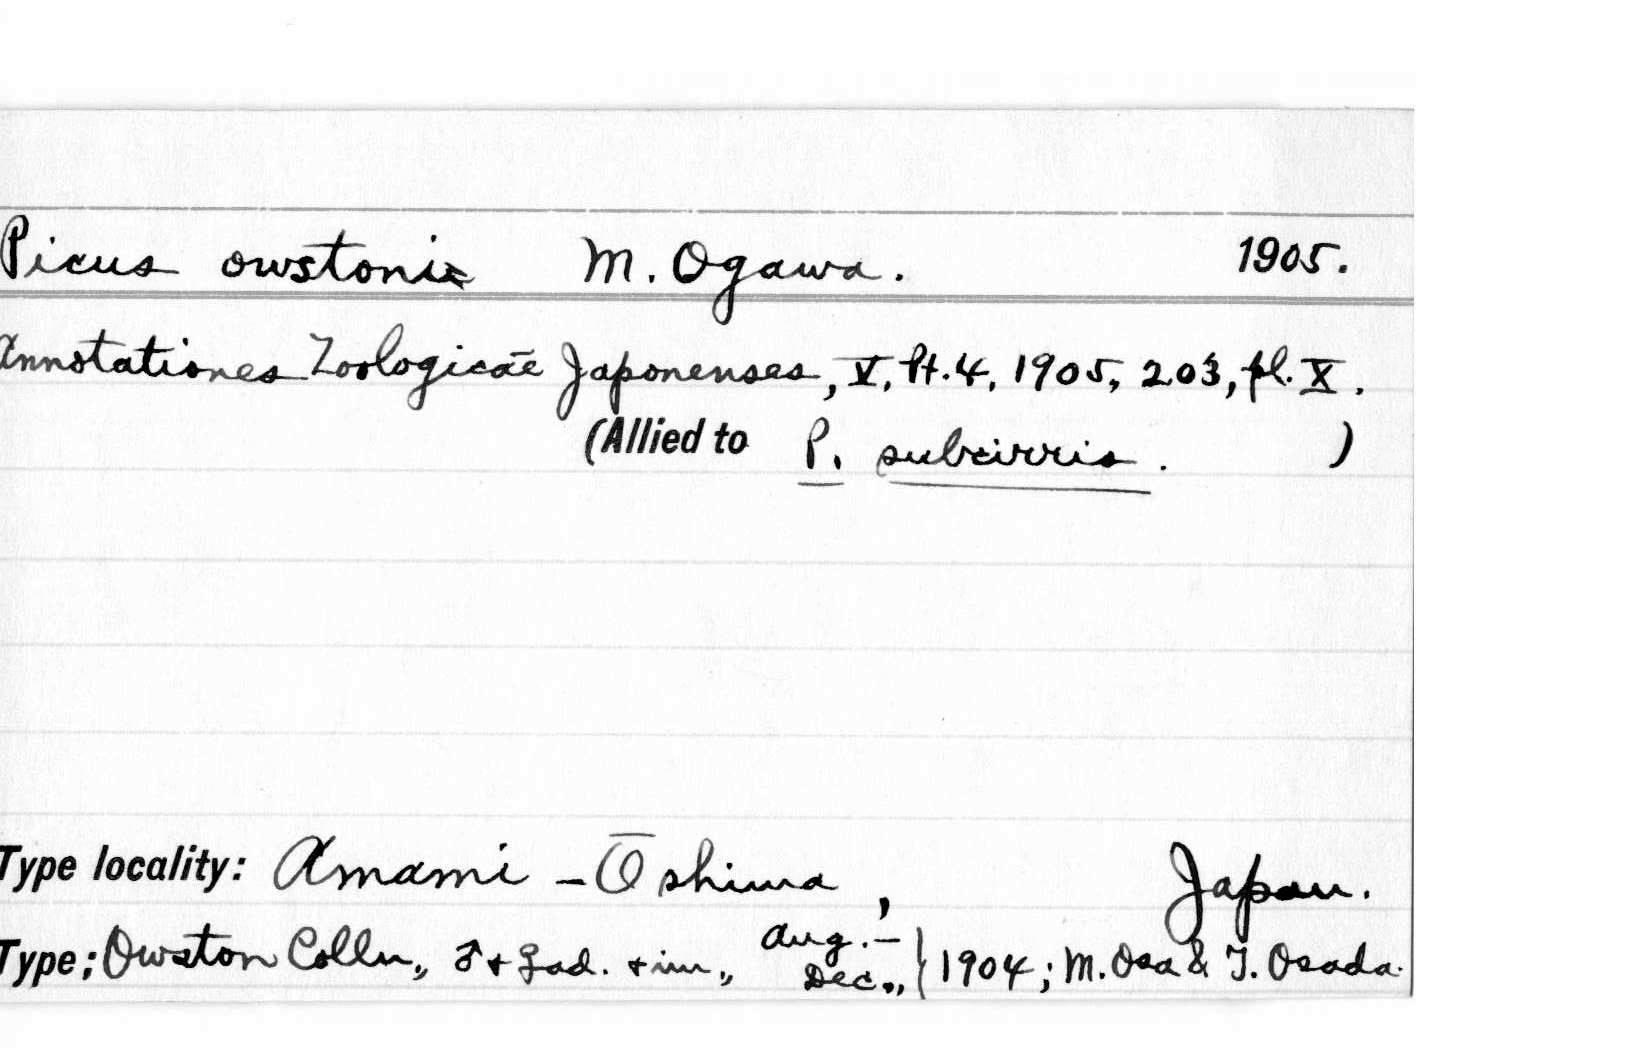 Picus owstoni M. Ogawa. 1905.
Annotationes Zoologicae Japonenses, V, Pt. 4, 1905, 203, pl. X.
(Allied to P. subcirris. )
Type locality: Amami - Ōshima, Japan.
Type; Owston Colln., ♂ + ♀ ad. + im., Aug. - Dec., } 1904; M. Osa & T. Osada.